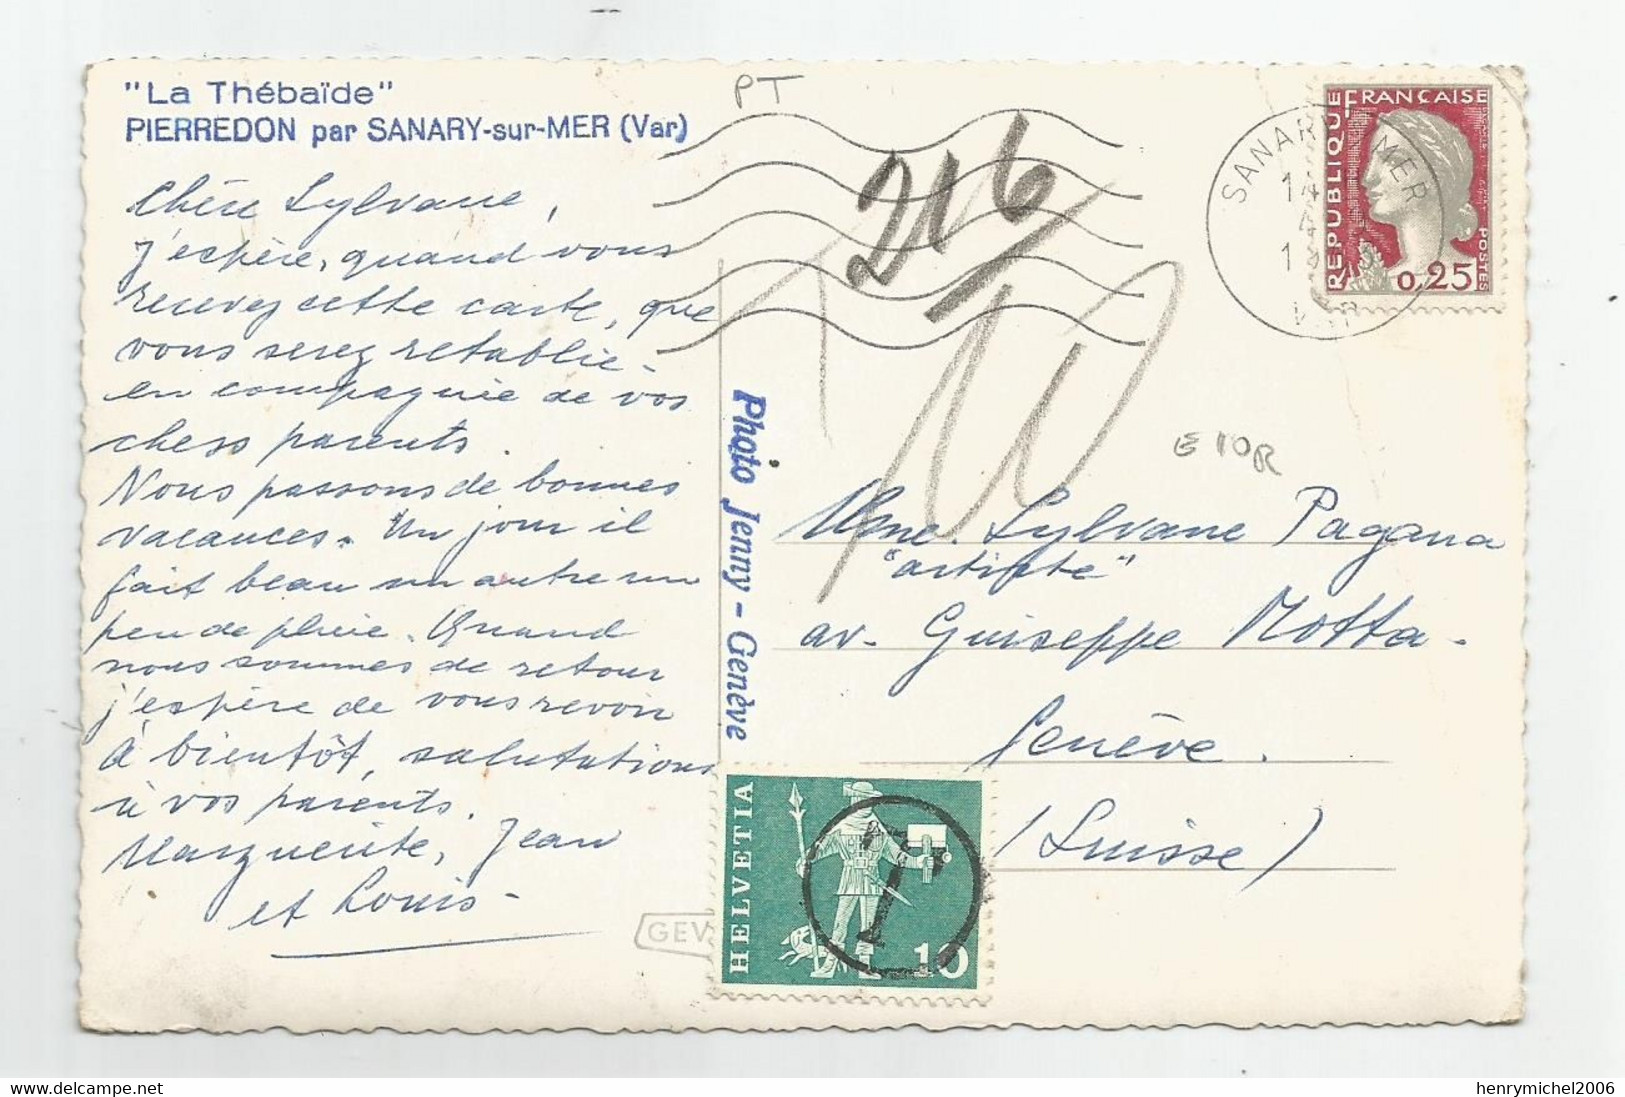 "La Thébaïde"
PIERREDON par SANARY-sur-MER (Var)
Chère Sylvane,
j'espère, quand vous
recevez cette carte, que
vous serez rétablie -
en compagnie de vos
chers parents.
Nous passons de bonnes
vacances. Un jour il
fait beau un autre un
peu de pluie. Quand
nous sommes de retour
j'espère de vous revoir
à bientôt, salutations
à vos parents.
Marguerite, Jean
et Louis -
PT
216
T
10
SANARY MER
14
VAR
RÉPUBLIQUE FRANÇAISE
POSTES
0,25
E 10R
Photo Jenny - Genève
Mme. Sylvane Pagana
"artiste"
av. Guiseppe Motta -
Genève.
(Suisse)
GEV
HELVETIA
T
10
henrymichel2006